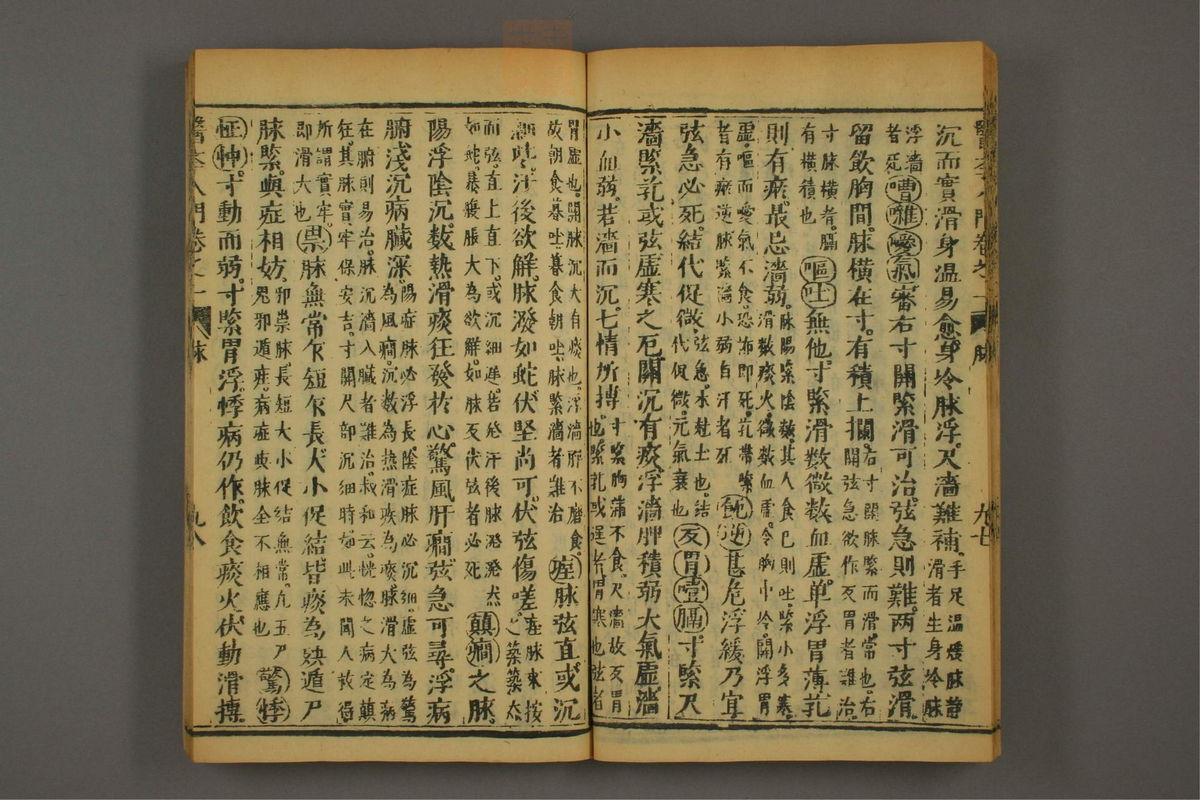 醫斈入門卷之一　脉　九七
沉而實滑身温易愈身冷脉浮尺濇難補手足温煖脉静滑者生身冷脉
浮濇者死嘈雜噯氣審右寸關緊滑可治弦急則難兩寸弦滑
留飲胸間脉橫在寸有積上攔右寸關脉緊而滑常也右關弦急欲作反胃者難治
寸脉橫者膈有橫積也嘔吐無他寸緊滑數微數血虛单浮胃薄芤
則有瘀最忌濇弱脉陽緊陰數其人食已則吐緊小多寒滑數痰火微數血虛令胸中冷關浮胃
虛嘔而噯氣不食恐怖即死芤帶緊者有瘀逆脉緊濇小弱自汗者死呃逆甚危浮緩乃宜
弦急必死結代促微弦急木尅土也結代促微元氣衰也反胃噎膈寸緊尺
濇緊芤或弦虛寒之厄關沉有痰浮濇脾積弱大氣虛濇
小血弱若濇而沉七情所搏寸緊胸滿不食尺濇故反胃也緊芤或遲者胃寒也弦者
胃虛也關脉沉大有痰也浮濇脾不磨食故朝食暮吐暮食朝吐脉緊濇者難治痙脉弦直或沉
細些汗後欲解脉潑如蛇伏坚尚可伏弦傷嗟痙脉來按之築築然
而弦直上直下或沉細遲若發汗後脉潑潑然如蛇暴腹脹大為欲解如脉反伏弦者必死顛癇之脉
陽浮陰沉数熱滑痰狂發於心驚風肝癇弦急可尋浮病
腑淺沉病臟深陽症脉必浮長陰症脉必沉細虛弦為驚為風癇沉数為热滑疾為痰脉滑大為病
在腑則易治脉沉濇入臟者難治叔和云恍惚之病定顛狂其脉實牢保安吉寸關尺部沉細時如此未聞人救得
所謂實牢即滑大也祟脉無常乍短乍長大小促結皆痰為殃遁尸
脉緊與症相妨邪祟脉長短大小促結無常凡五尸鬼邪遁疰病症與脉全不相應也驚悸
怔忡寸動而弱寸緊胃浮悸病仍作飲食痰火伏動滑搏
醫斈入門卷之一　脉　九八